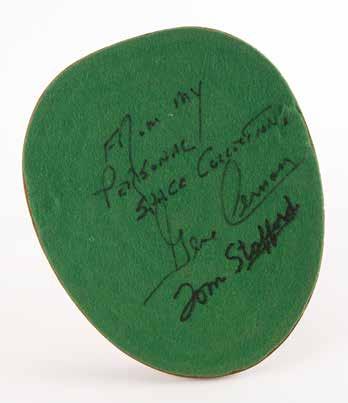 From my
Personal
Space Collection.
Gene Cernan
Tom Stafford